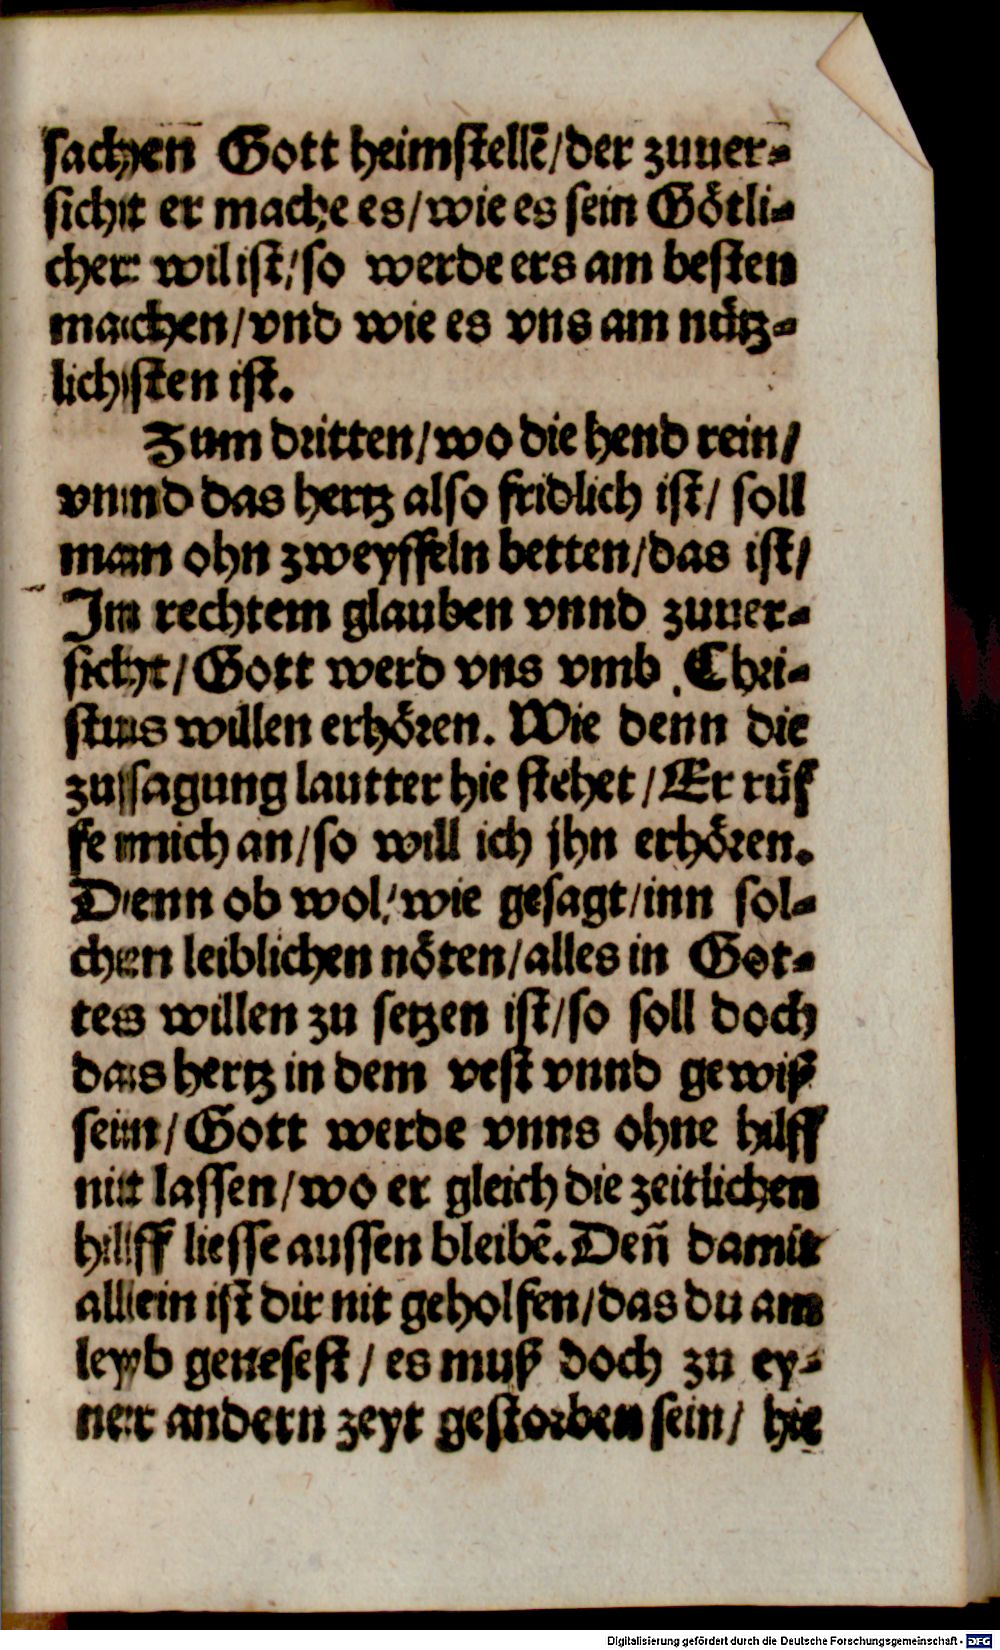 sachen Gott heimstellē/der zuuer-
sicht er mache es/wie es sein Götli-
cher wil ist/so werde ers am besten
machen/vnd wie es vns am nütz-
lichsten ist.
Zum dritten/wo die hend rein/
vnnd das hertz also fridlich ist/ soll
man ohn zweyffeln betten/das ist/
Im rechtem glauben vnnd zuuer-
sicht/Gott werd vns vmb Chri-
stus willen erhören. Wie denn die
zussagung lautter hie stehet/Er rüf
fe mich an/so will ich jhn erhören.
Denn ob wol/wie gesagt/inn sol-
chen leiblichen nöten/alles in Got-
tes willen zu setzen ist/so soll doch
das hertz in dem vest vnnd gewiß
sein/Gott werde vnns ohne hilff
nit lassen/wo er gleich die zeitlichen
hilff liesse aussen bleibē. Den̄ damit
allein ist dir nit geholfen/das du am
leyb genesest/es muß doch zu ey-
ner andern zeyt gestorben sein/ hie
Digitalisierung gefördert durch die Deutsche Forschungsgemeinschaft - DFG